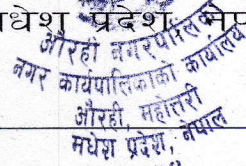 मधेश प्रदेश, नेपाल
औरही नगरपालिका
नगर कार्यपालिकाको कार्यालय
औरही, महोत्तरी
मधेश प्रदेश, नेपाल